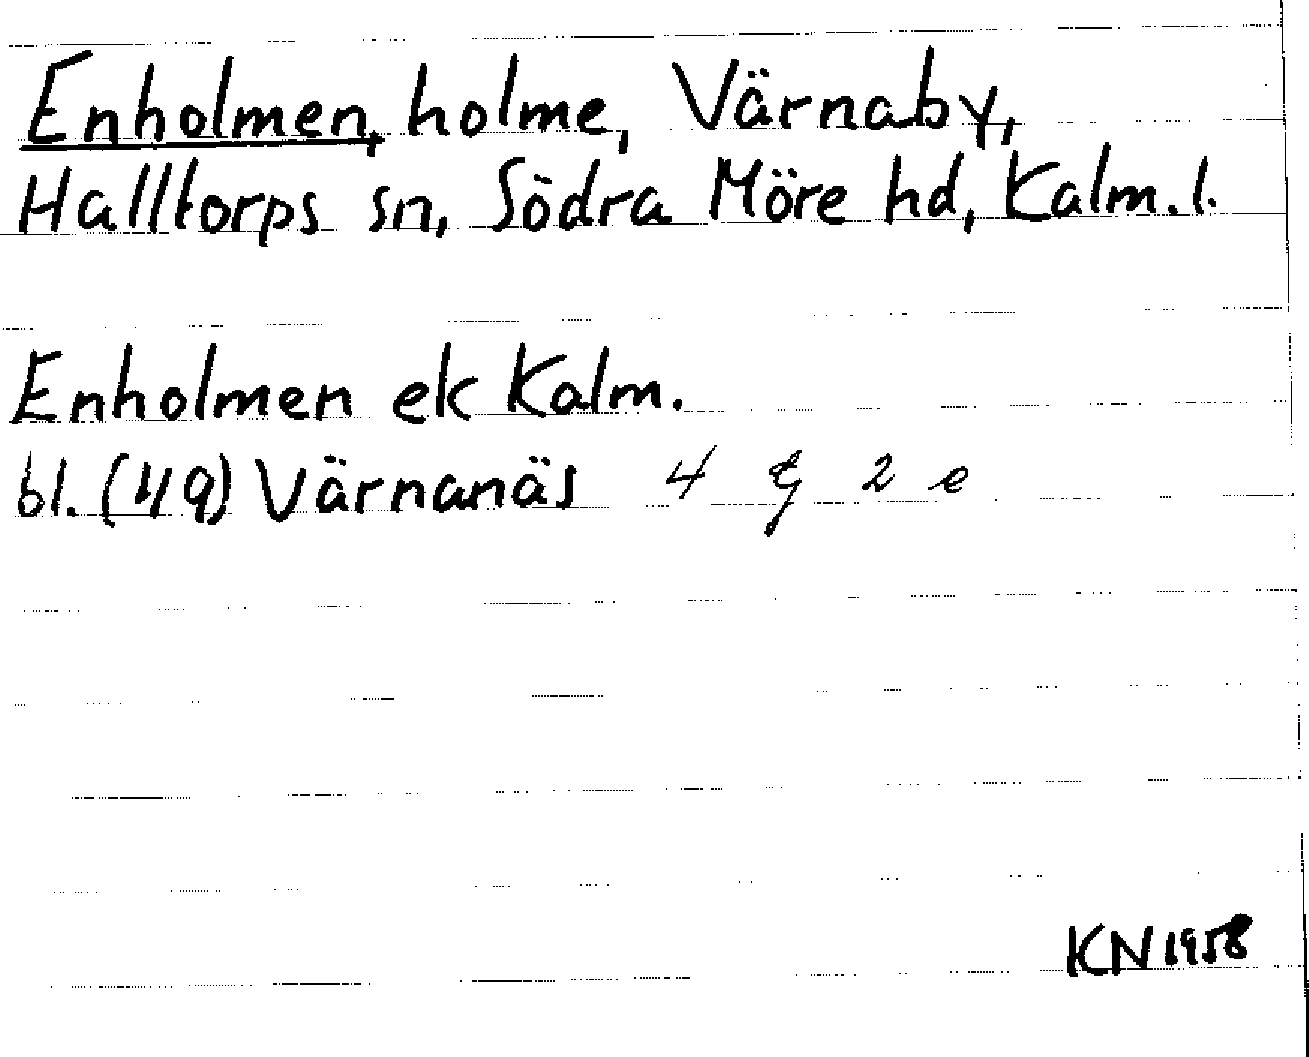 Enholmen, holme, Värnaby,
Halltorps sn, Södra Möre hd, Kalm. l.
Enholmen ek Kalm.
bl. (49) Värnanäs 4 g 2 e
KN 1958